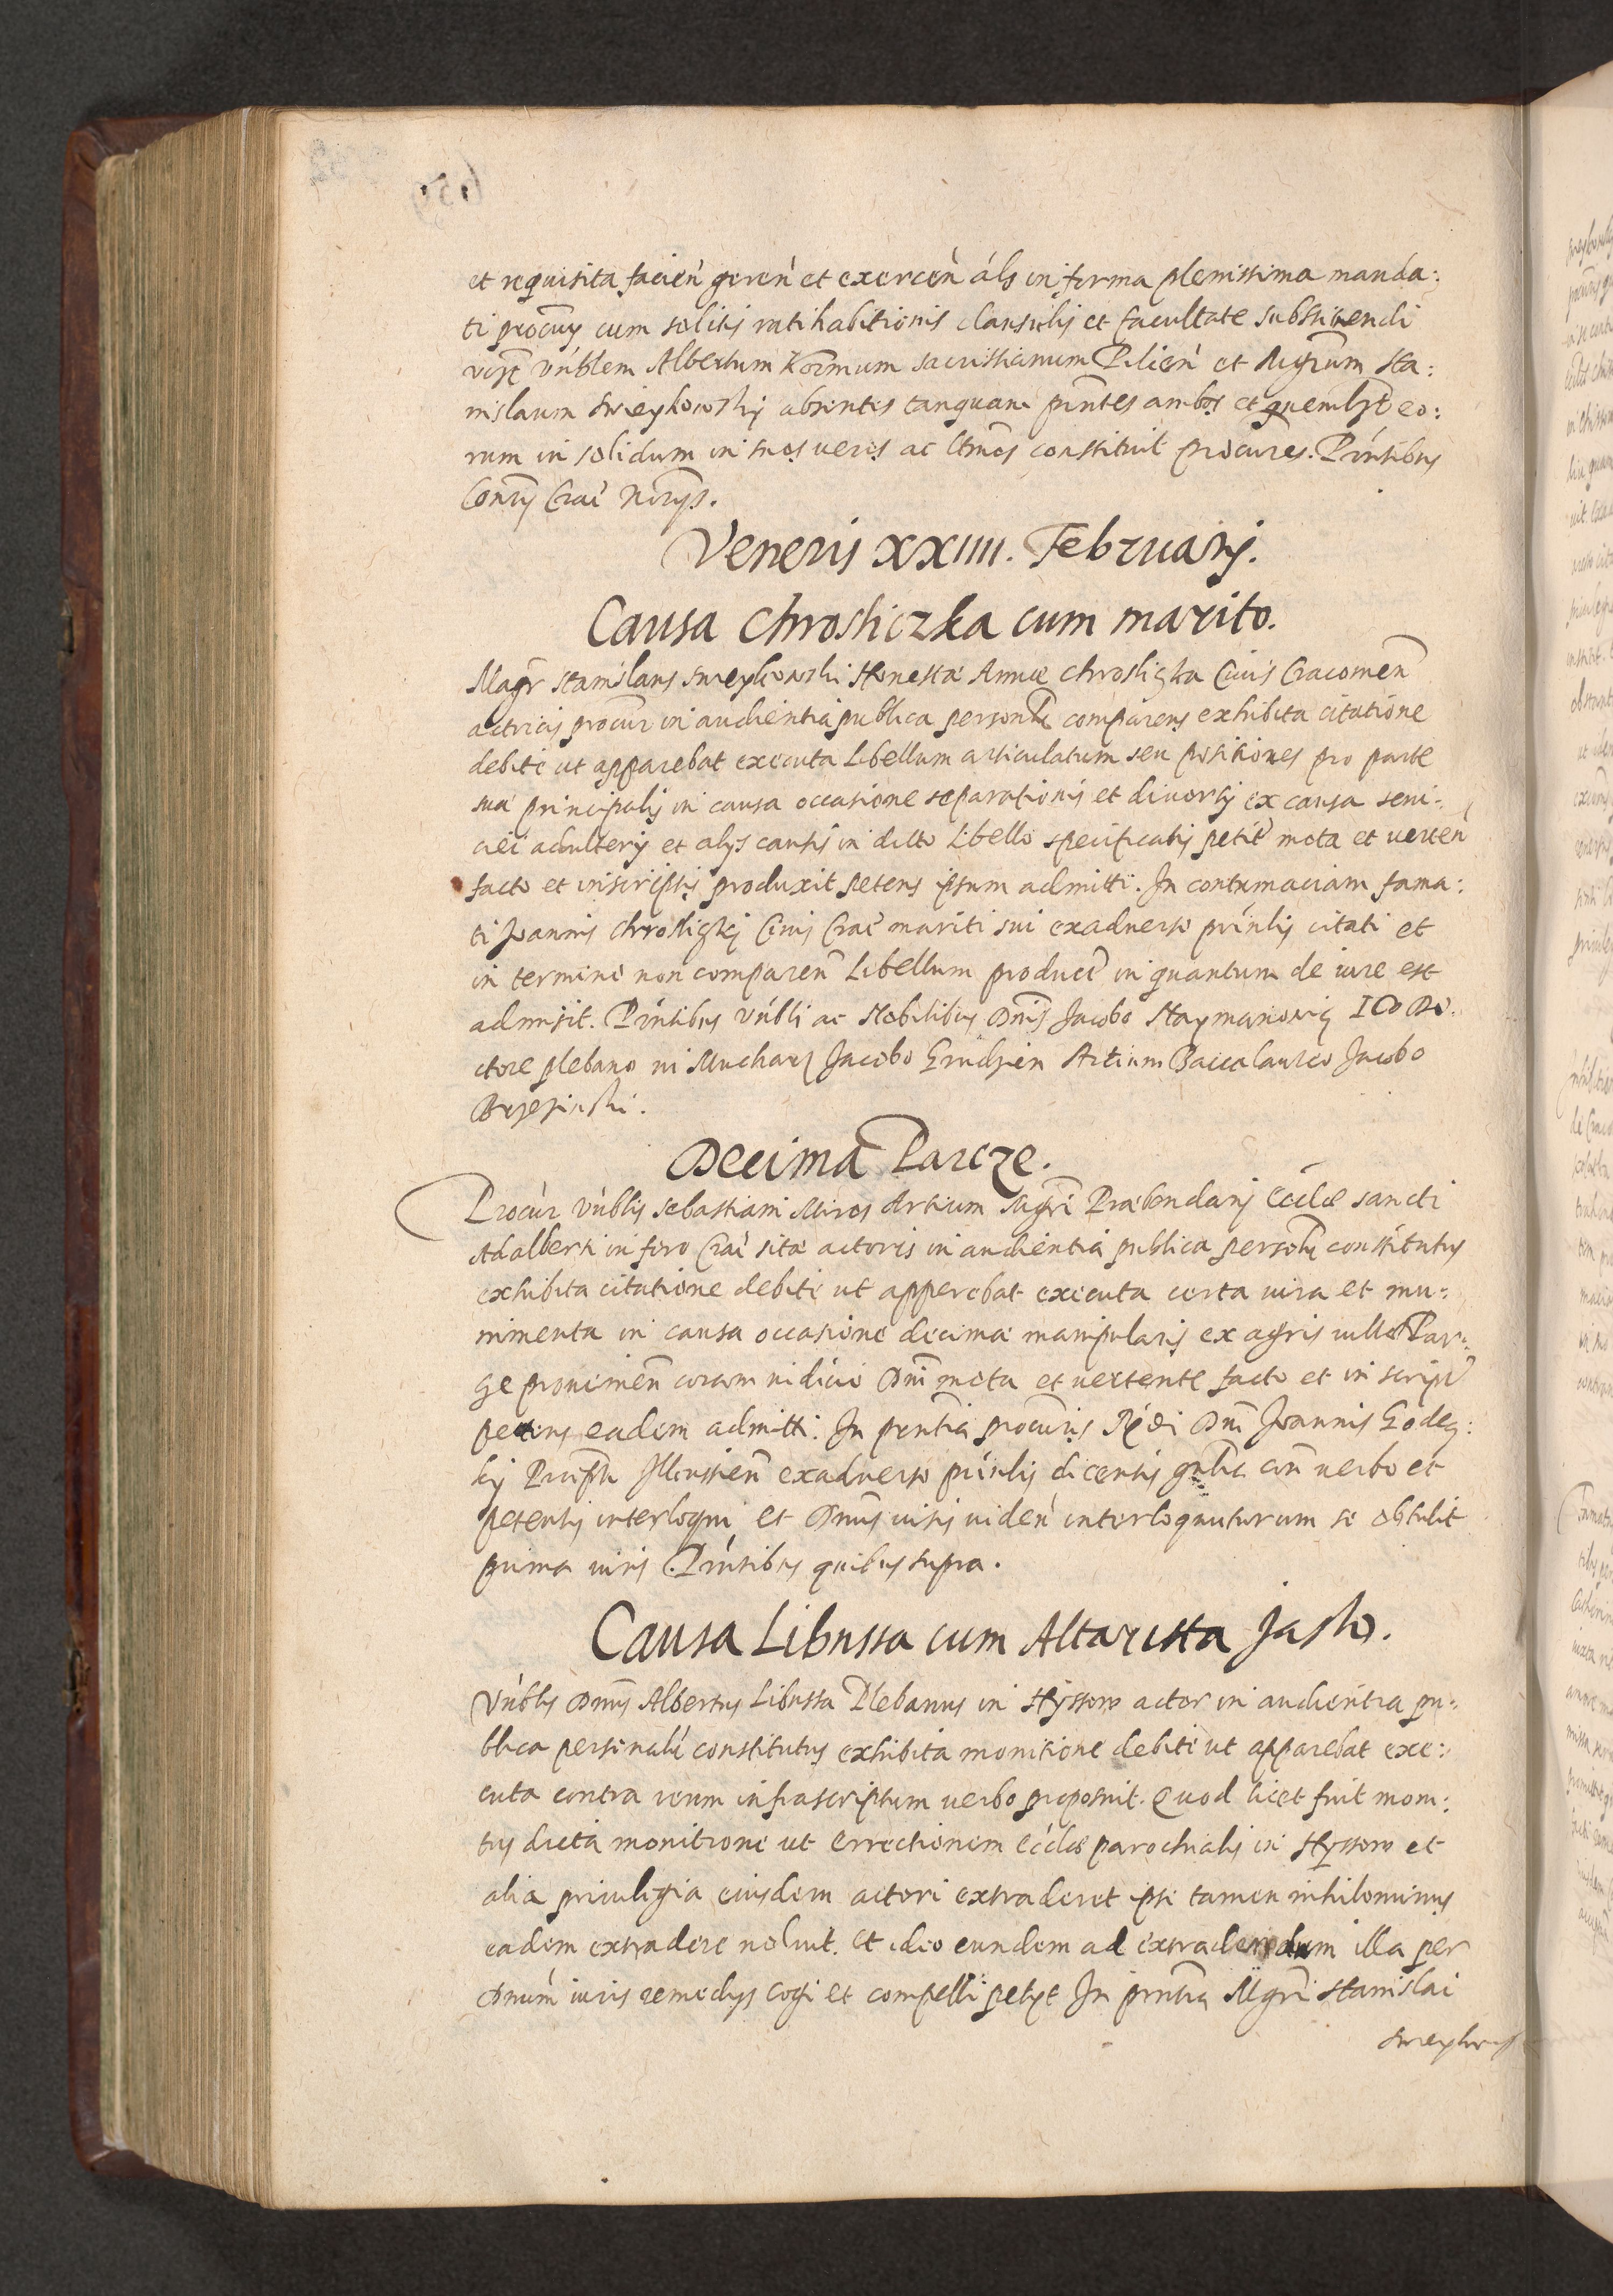 et requisita facien geren et exercen als in forma plenissima manda:
ti procurij cum solitis ratihabitionis clausulis et facultate substituendi
Vnblem Albertum sacristianum Pilicien et Mgrum Sta:
nislaum Swieykowskij absentes tanquam pntes ambos et quemlibet eo:
rum in solidum in suos veros ac ltmos constituit procures. Pntibus
Consrij Crac Norijs.
Veneris XXIIII. Februarij.
Causa Chrosliczka cum marito.
Magr Stanislaus Swieykowski Honestæ Annæ Chrosliczka Civis Cracouien
actricis procur in audientia publica personlr comparens exhibita citatione
debite ut apparebat executa Libellum articulatum seu positiones pro parte
suæ principalis in causa occasione separationis et divortij ex causa seui:
ciei adulterij et alijs causis in dicto Libello specificatis petit mota et verten
facto et in scriptis produxit petens ipsum admitti. In contumaciam fama:
ti Joannis Chrosliczkij Civis Crac mariti sui exaduerso prinlis citati et
in termino non comparen Libellum produci in quantum de iure est
admisit. Pntibus Vnbli ac Nobilibus Dnis Jacobo Staymanowicz ICo Do:
ctore plebano in Mucharz Jacobo Grudzien Artium Baccalaureo Jacobo
Brzezinski.
Decima Parcze.
Procur Vnblis Sebastiani Miros Artium Mgri Præbendarij Ecclæ sancti
Adalberti in foro Crac sitæ actoris in audientia publica personlr constitutus
exhibita citatione debite ut apperebat executa certa iura et mu:
nimenta in causa occasione decimæ manipularis ex agris villæ Par:
cze prouenien coram iudicio Dni mota et vertente facto et in script
petens eadem admitti. In pntia procuris Rdi Dni Joannis Godecz:
kij exaduerso prinlis dicentis gnlia con verbo et
petentis interloqui et Dnus visis viden interloquuturum se obtulit
prima iuris. Pntibus quibus supra.
Causa Librussa cum Altarista Jaslo.
Vnblis Dnus Albertus Librussa Plebanus in actor in audientia pu:
blica personalr constitutus exhibita monitione debite ut apparebat exe:
cuta contra reum infrascriptum verbo proposuit. Quod licet fuit moni:
tus dicta monitione ut errectionem ecclæ parochialis in et
alia priuilegia eiusdem actori extraderet ipse tamen nihilominus
eadem extradere noluit. Et ideo eundem ad extradendum illa per
Dnum iuris remedijs cogi et compelli petijt In pntia Mgri Stanislai